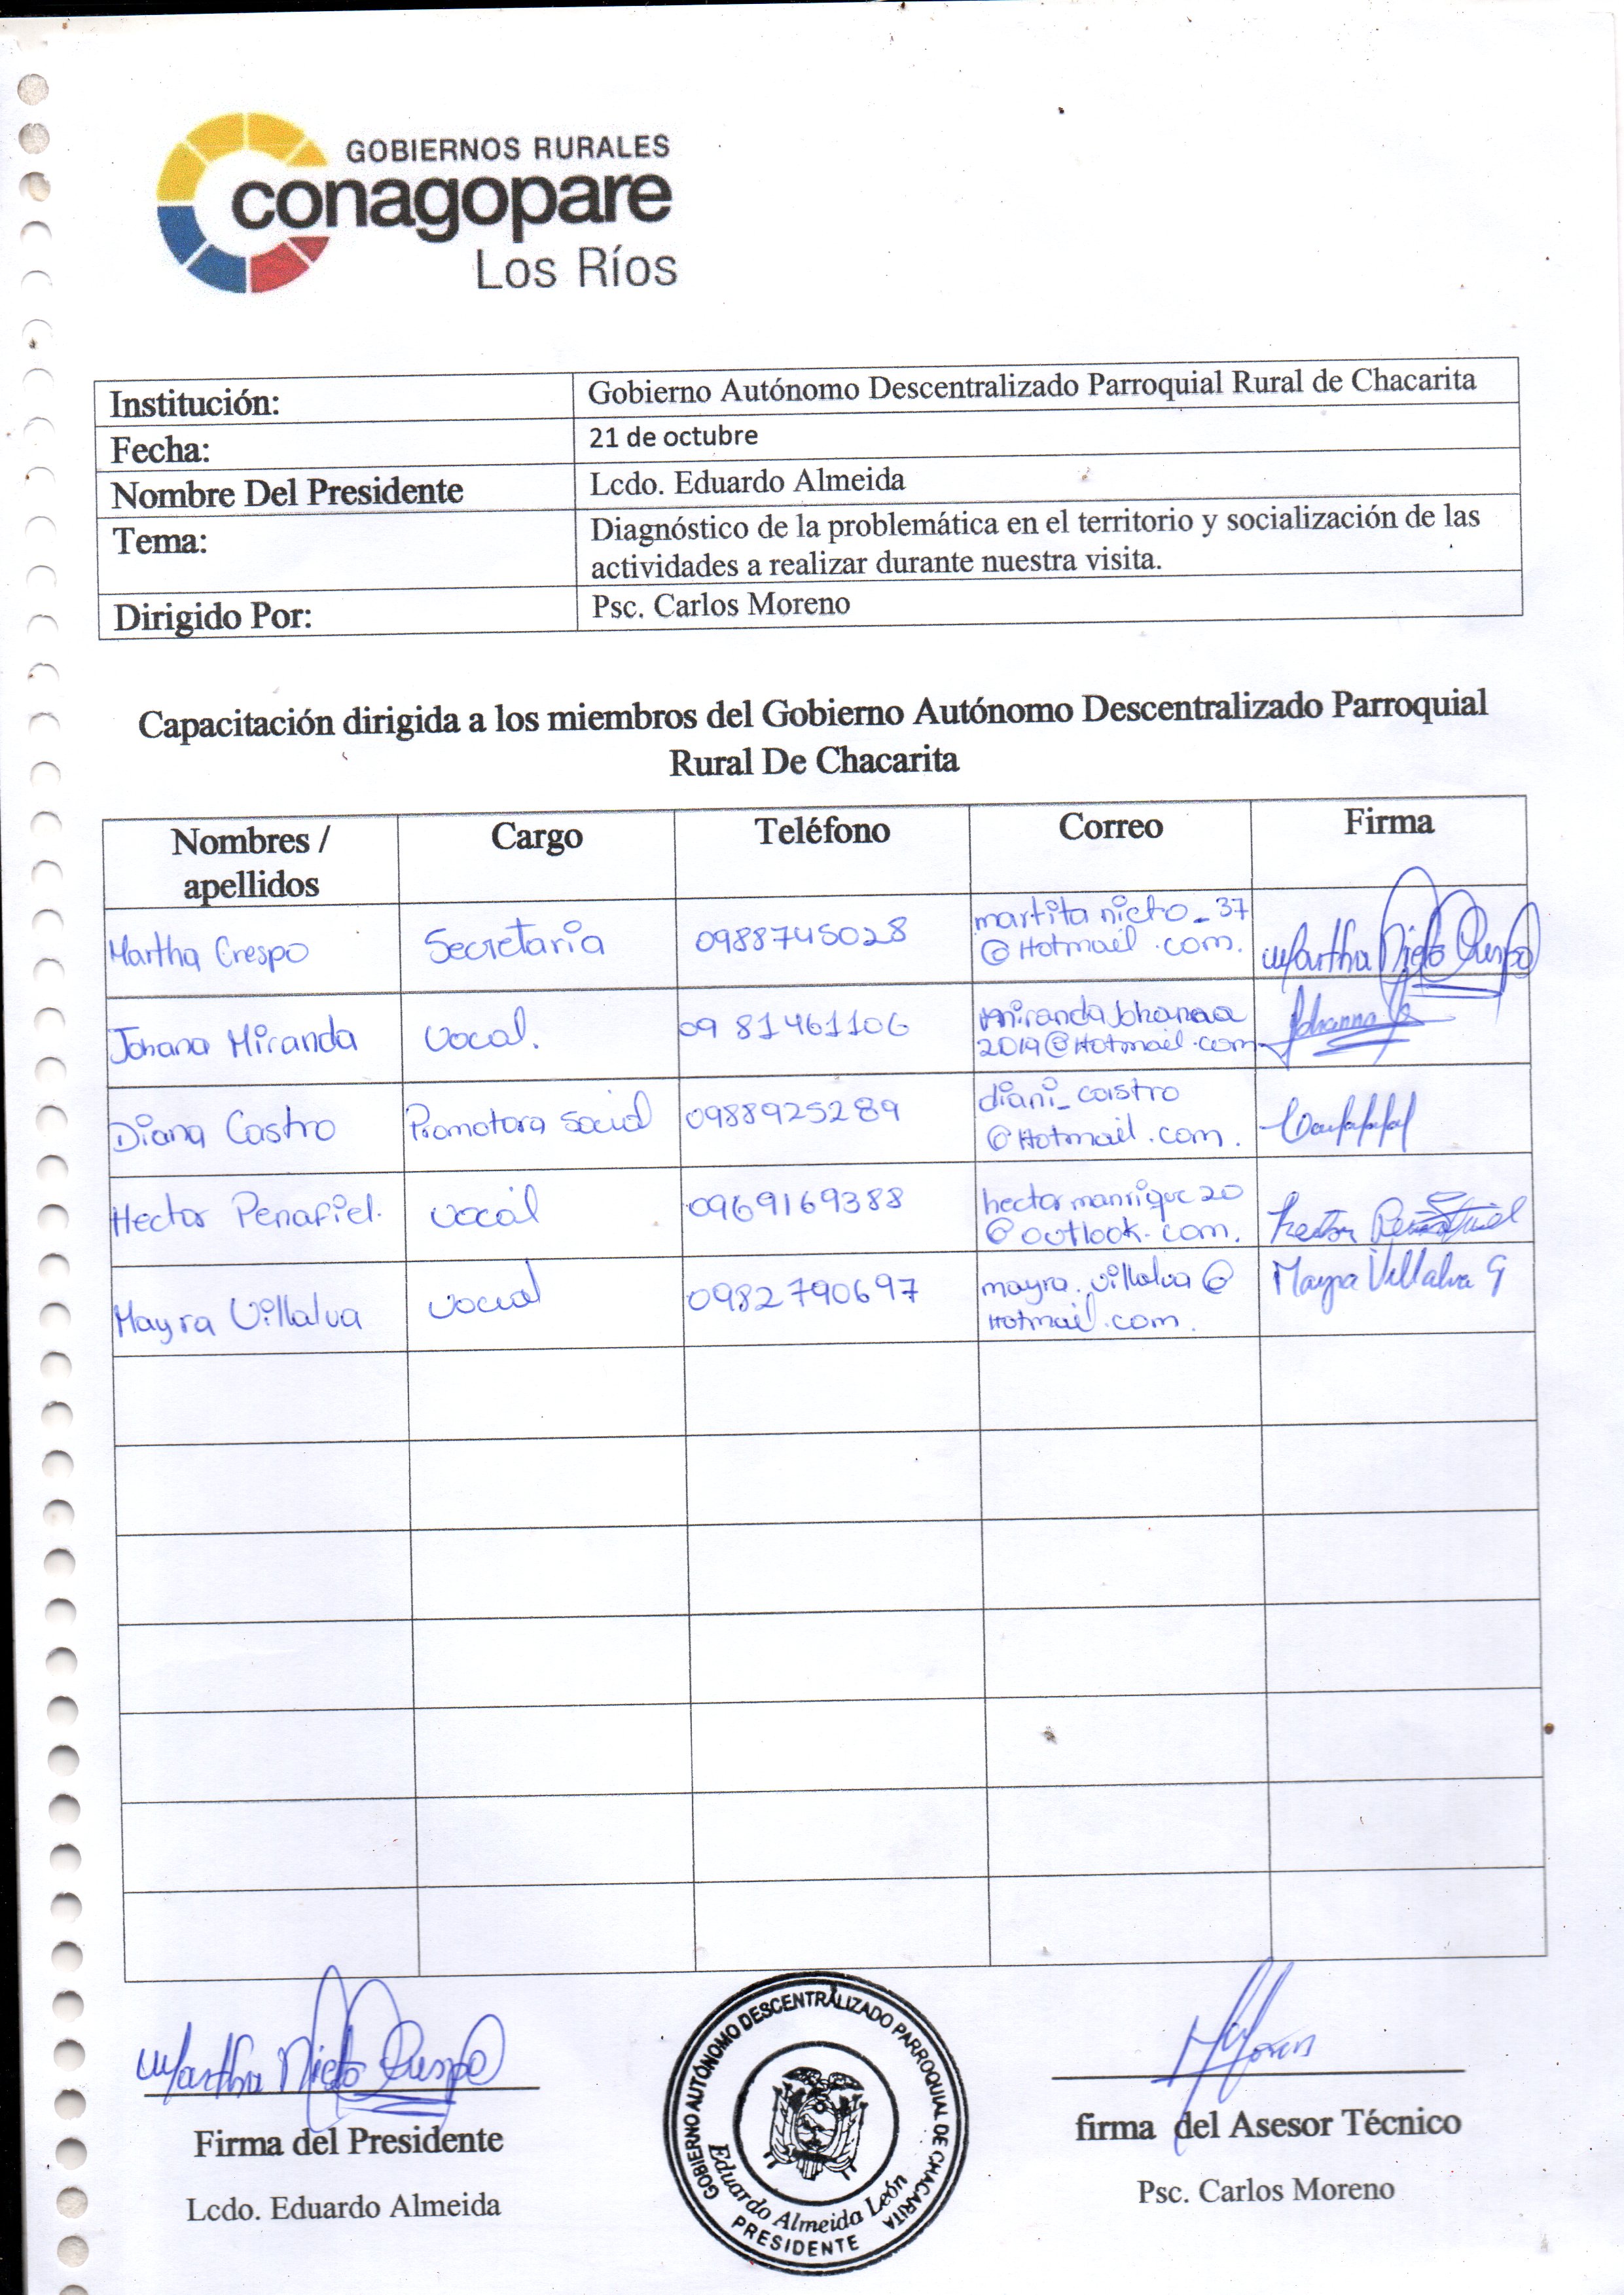 GOBIERNOS RURALES
conagopare
Los Ríos
Institución: Gobierno Autónomo Descentralizado Parroquial Rural de Chacarita
Fecha: 21 de octubre
Nombre Del Presidente Lcdo. Eduardo Almeida
Tema: Diagnóstico de la problemática en el territorio y socialización de las
actividades a realizar durante nuestra visita.
Dirigido Por: Psc. Carlos Moreno
Capacitación dirigida a los miembros del Gobierno Autónomo Descentralizado Parroquial
Rural De Chacarita
Nombres / Cargo Teléfono Correo Firma
apellidos
Martha Crespo Secretaria 0988745028 martita nieto_37
@Hotmail.com. Martha Nieto Crespo
Johana Miranda vocal. 0981461106 mirandaJohanaa
2019@Hotmail.com Johanna
Diana Castro Promotora Social 0988925289 diani_castro
@Hotmail.com.
Hector Penafiel. vocal 0969169388 hectormanrique20
@outlook.com. Hector
Mayra Villalva vocal 0982790697 mayra.villalva@
Hotmail.com. Mayra Villalva G
Martha Nieto Crespo
Firma del Presidente
Lcdo. Eduardo Almeida
GOBIERNO AUTÓNOMO DESCENTRALIZADO PARROQUIAL DE CHACARITA
Eduardo Almeida León
PRESIDENTE
firma del Asesor Técnico
Psc. Carlos Moreno